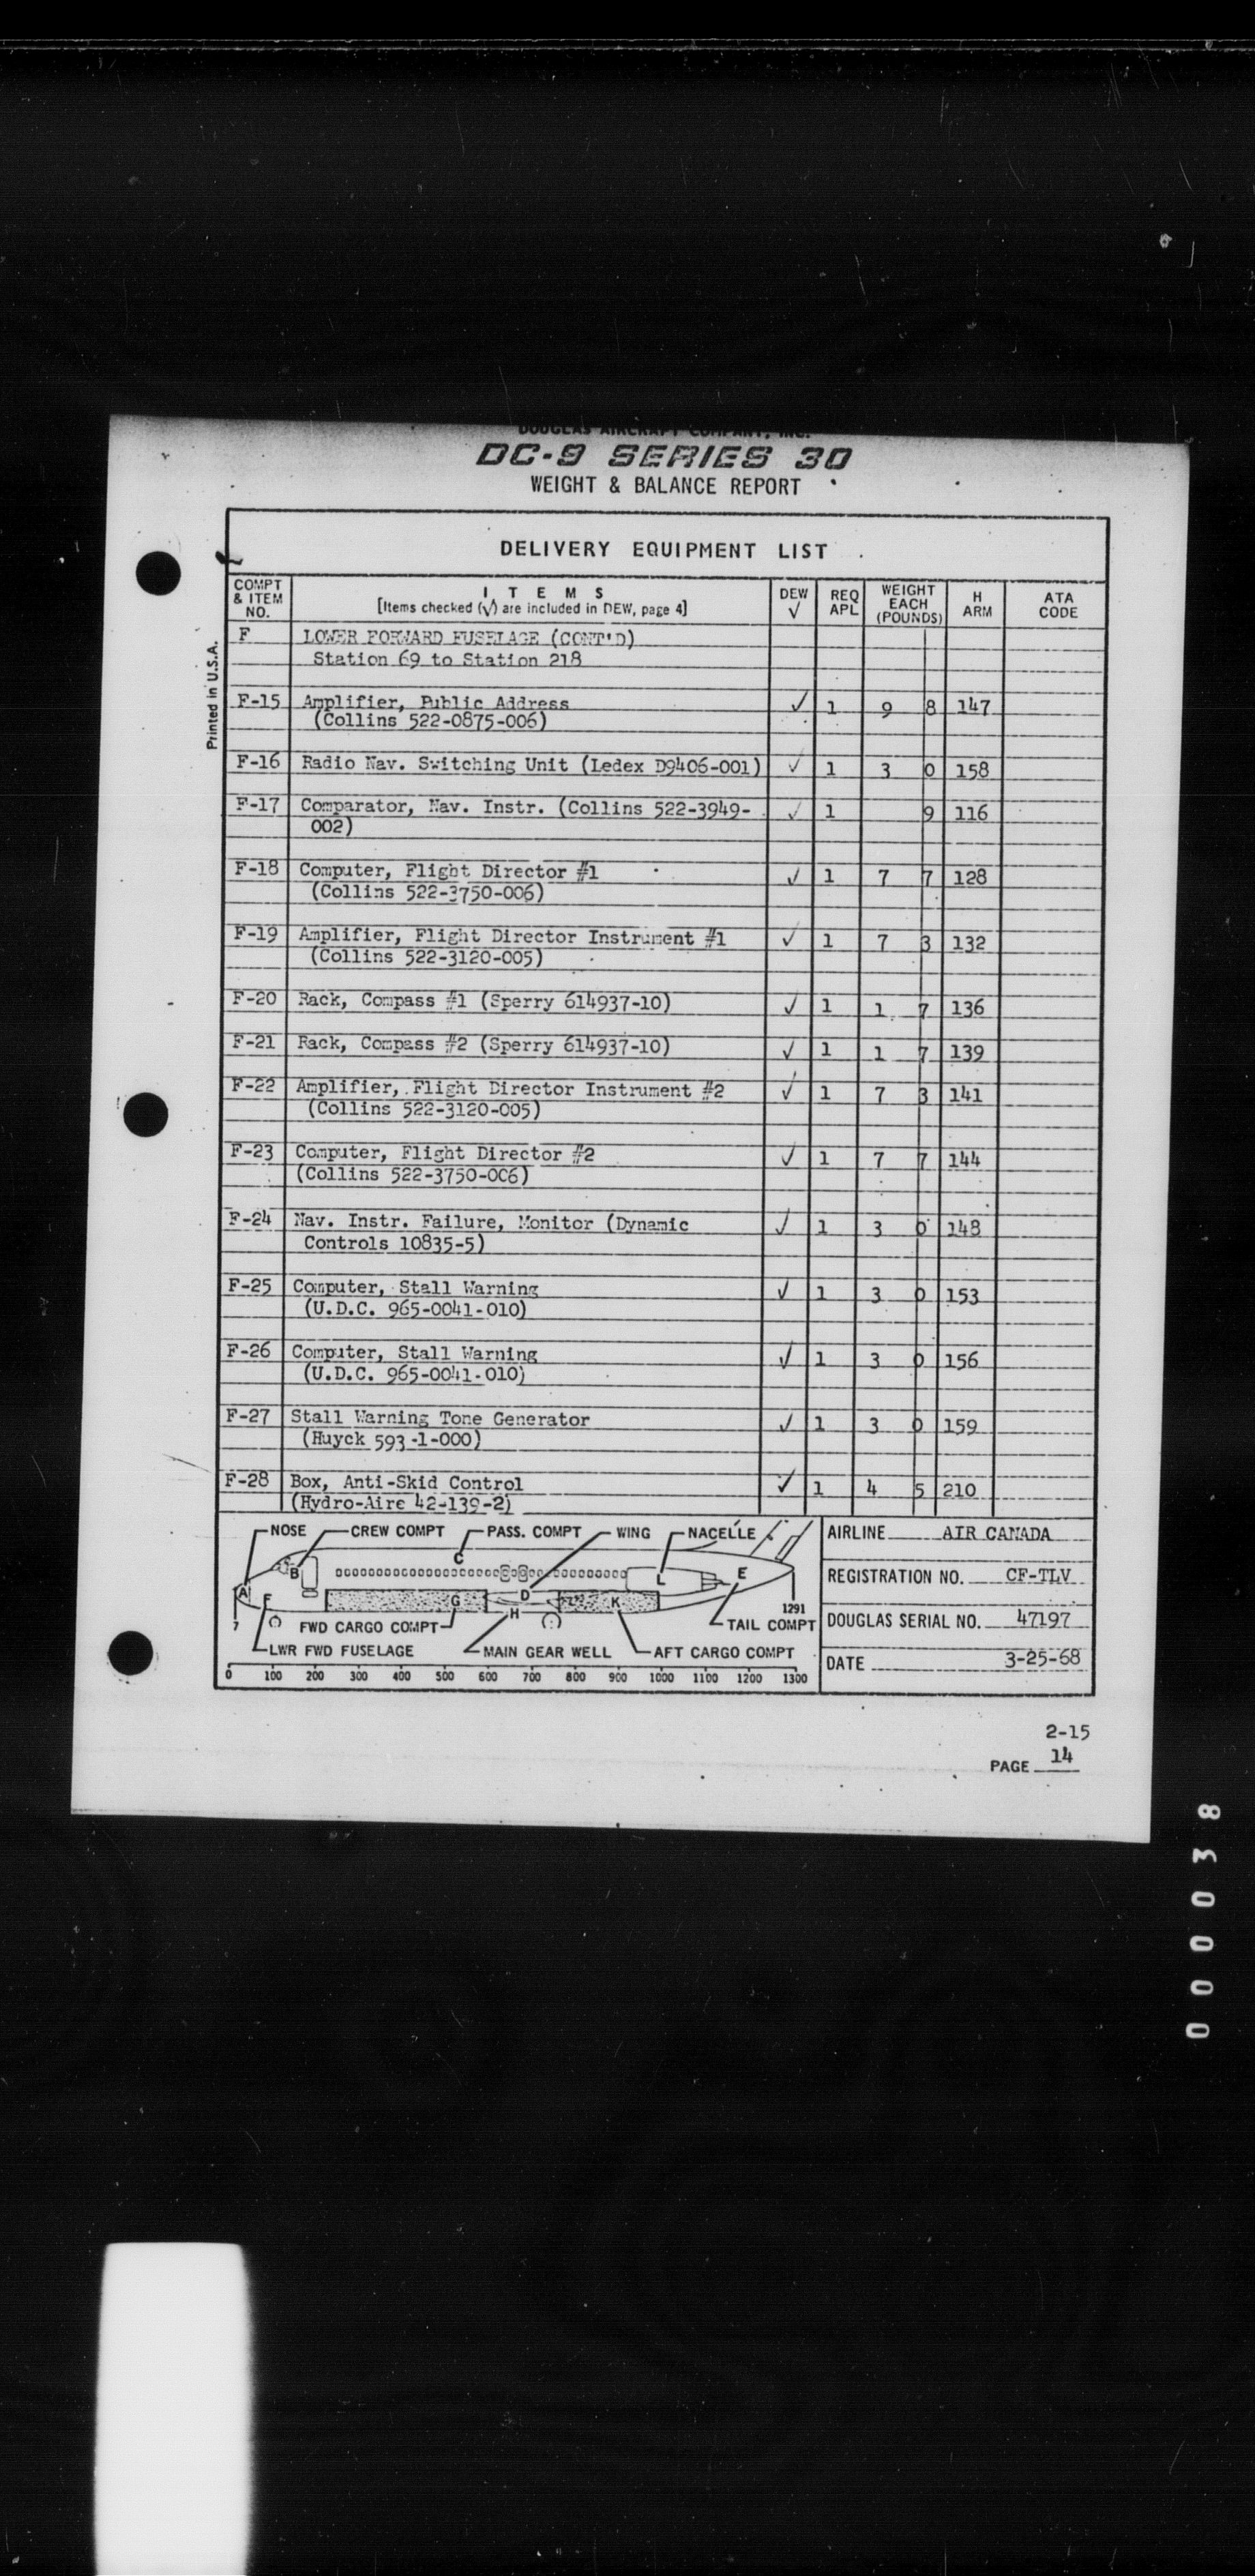 DOUGLAS AIRCRAFT COMPANY, INC.
DC-9 SERIES 30
WEIGHT & BALANCE REPORT
DELIVERY EQUIPMENT LIST
COMPT & ITEM NO. ITEMS [Items checked (√) are included in DEW, page 4] DEW √ REQ APL WEIGHT EACH (POUNDS) H ARM ATA CODE
F LOWER FORWARD FUSELAGE (CONT'D)
Station 69 to Station 218
F-15 Amplifier, Public Address ✓ 1 9 8 147
(Collins 522-0875-006)
F-16 Radio Nav. Switching Unit (Ledex D9406-001) ✓ 1 3 0 158
F-17 Comparator, Nav. Instr. (Collins 522-3949- ✓ 1 9 116
002)
F-18 Computer, Flight Director #1 ✓ 1 7 7 128
(Collins 522-3750-006)
F-19 Amplifier, Flight Director Instrument #1 ✓ 1 7 3 132
(Collins 522-3120-005)
F-20 Rack, Compass #1 (Sperry 614937-10) ✓ 1 1 7 136
F-21 Rack, Compass #2 (Sperry 614937-10) ✓ 1 1 7 139
F-22 Amplifier, Flight Director Instrument #2 ✓ 1 7 3 141
(Collins 522-3120-005)
F-23 Computer, Flight Director #2 ✓ 1 7 7 144
(Collins 522-3750-006)
F-24 Nav. Instr. Failure, Monitor (Dynamic ✓ 1 3 0 148
Controls 10835-5)
F-25 Computer, Stall Warning ✓ 1 3 0 153
(U.D.C. 965-0041-010)
F-26 Computer, Stall Warning ✓ 1 3 0 156
(U.D.C. 965-0041-010)
F-27 Stall Warning Tone Generator ✓ 1 3 0 159
(Huyck 593-1-000)
F-28 Box, Anti-Skid Control ✓ 1 4 5 210
(Hydro-Aire 42-139-2)
Printed in U.S.A.
NOSE CREW COMPT PASS. COMPT WING NACELLE
B C
A F G D H K L E
7 1291
FWD CARGO COMPT TAIL COMPT
LWR FWD FUSELAGE MAIN GEAR WELL AFT CARGO COMPT
0 100 200 300 400 500 600 700 800 900 1000 1100 1200 1300
AIRLINE AIR CANADA
REGISTRATION NO. CF-TLV
DOUGLAS SERIAL NO. 47197
DATE 3-25-68
2-15
PAGE 14
000038